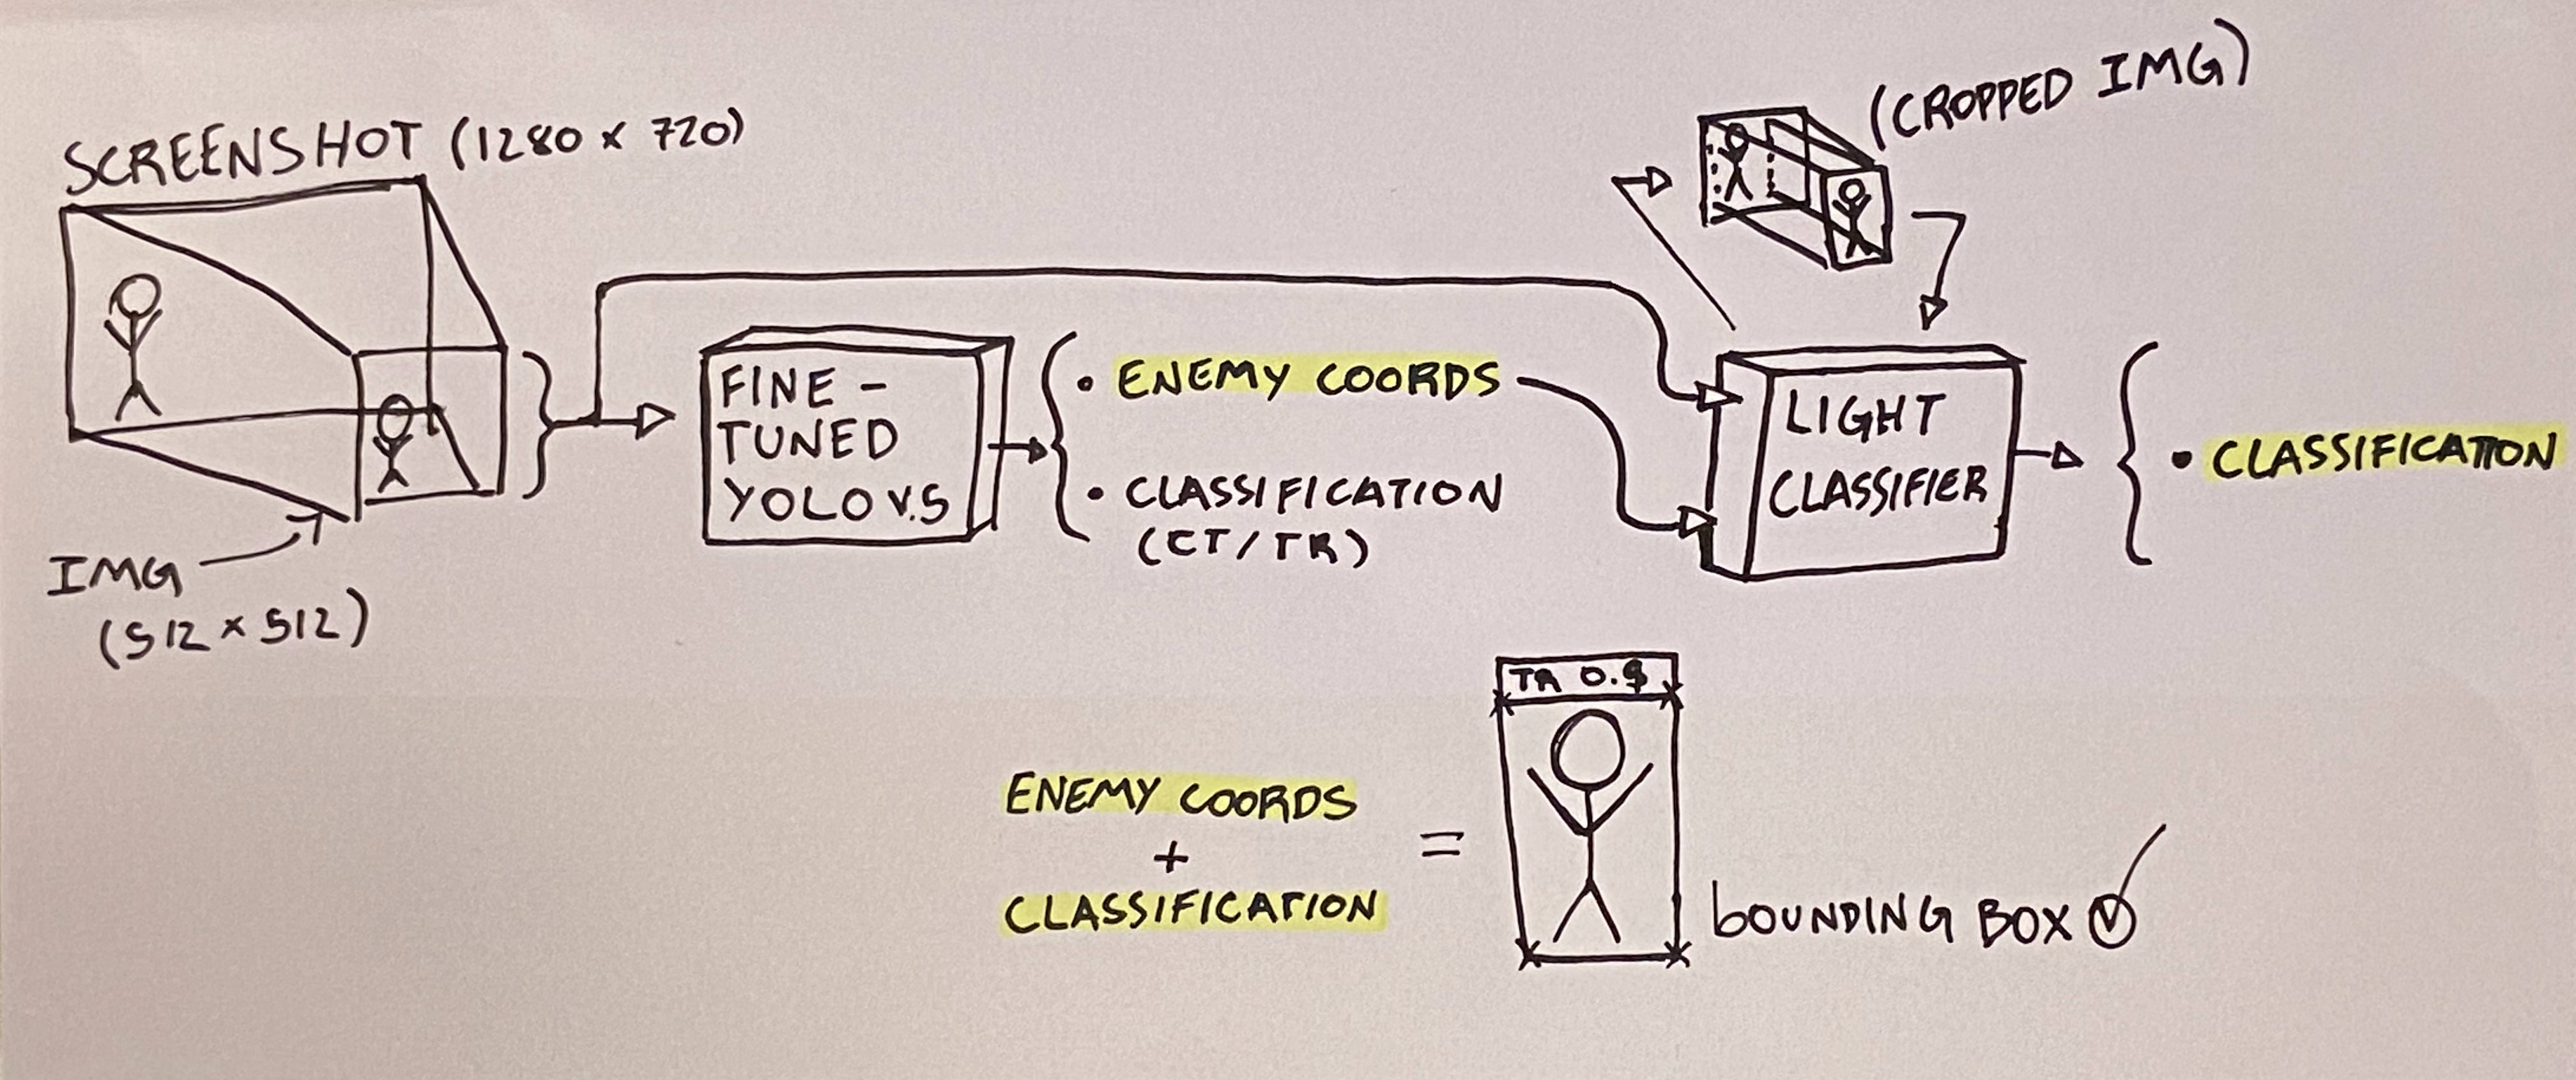 SCREENSHOT (1280 x 720)
(CROPPED IMG)
IMG
(512 x 512)
FINE -
TUNED
YOLO V.5
• ENEMY COORDS
• CLASSIFICATION
(CT/TR)
LIGHT
CLASSIFIER
• CLASSIFICATION
ENEMY COORDS
+
CLASSIFICATION
=
TR 0.
BOUNDING BOX